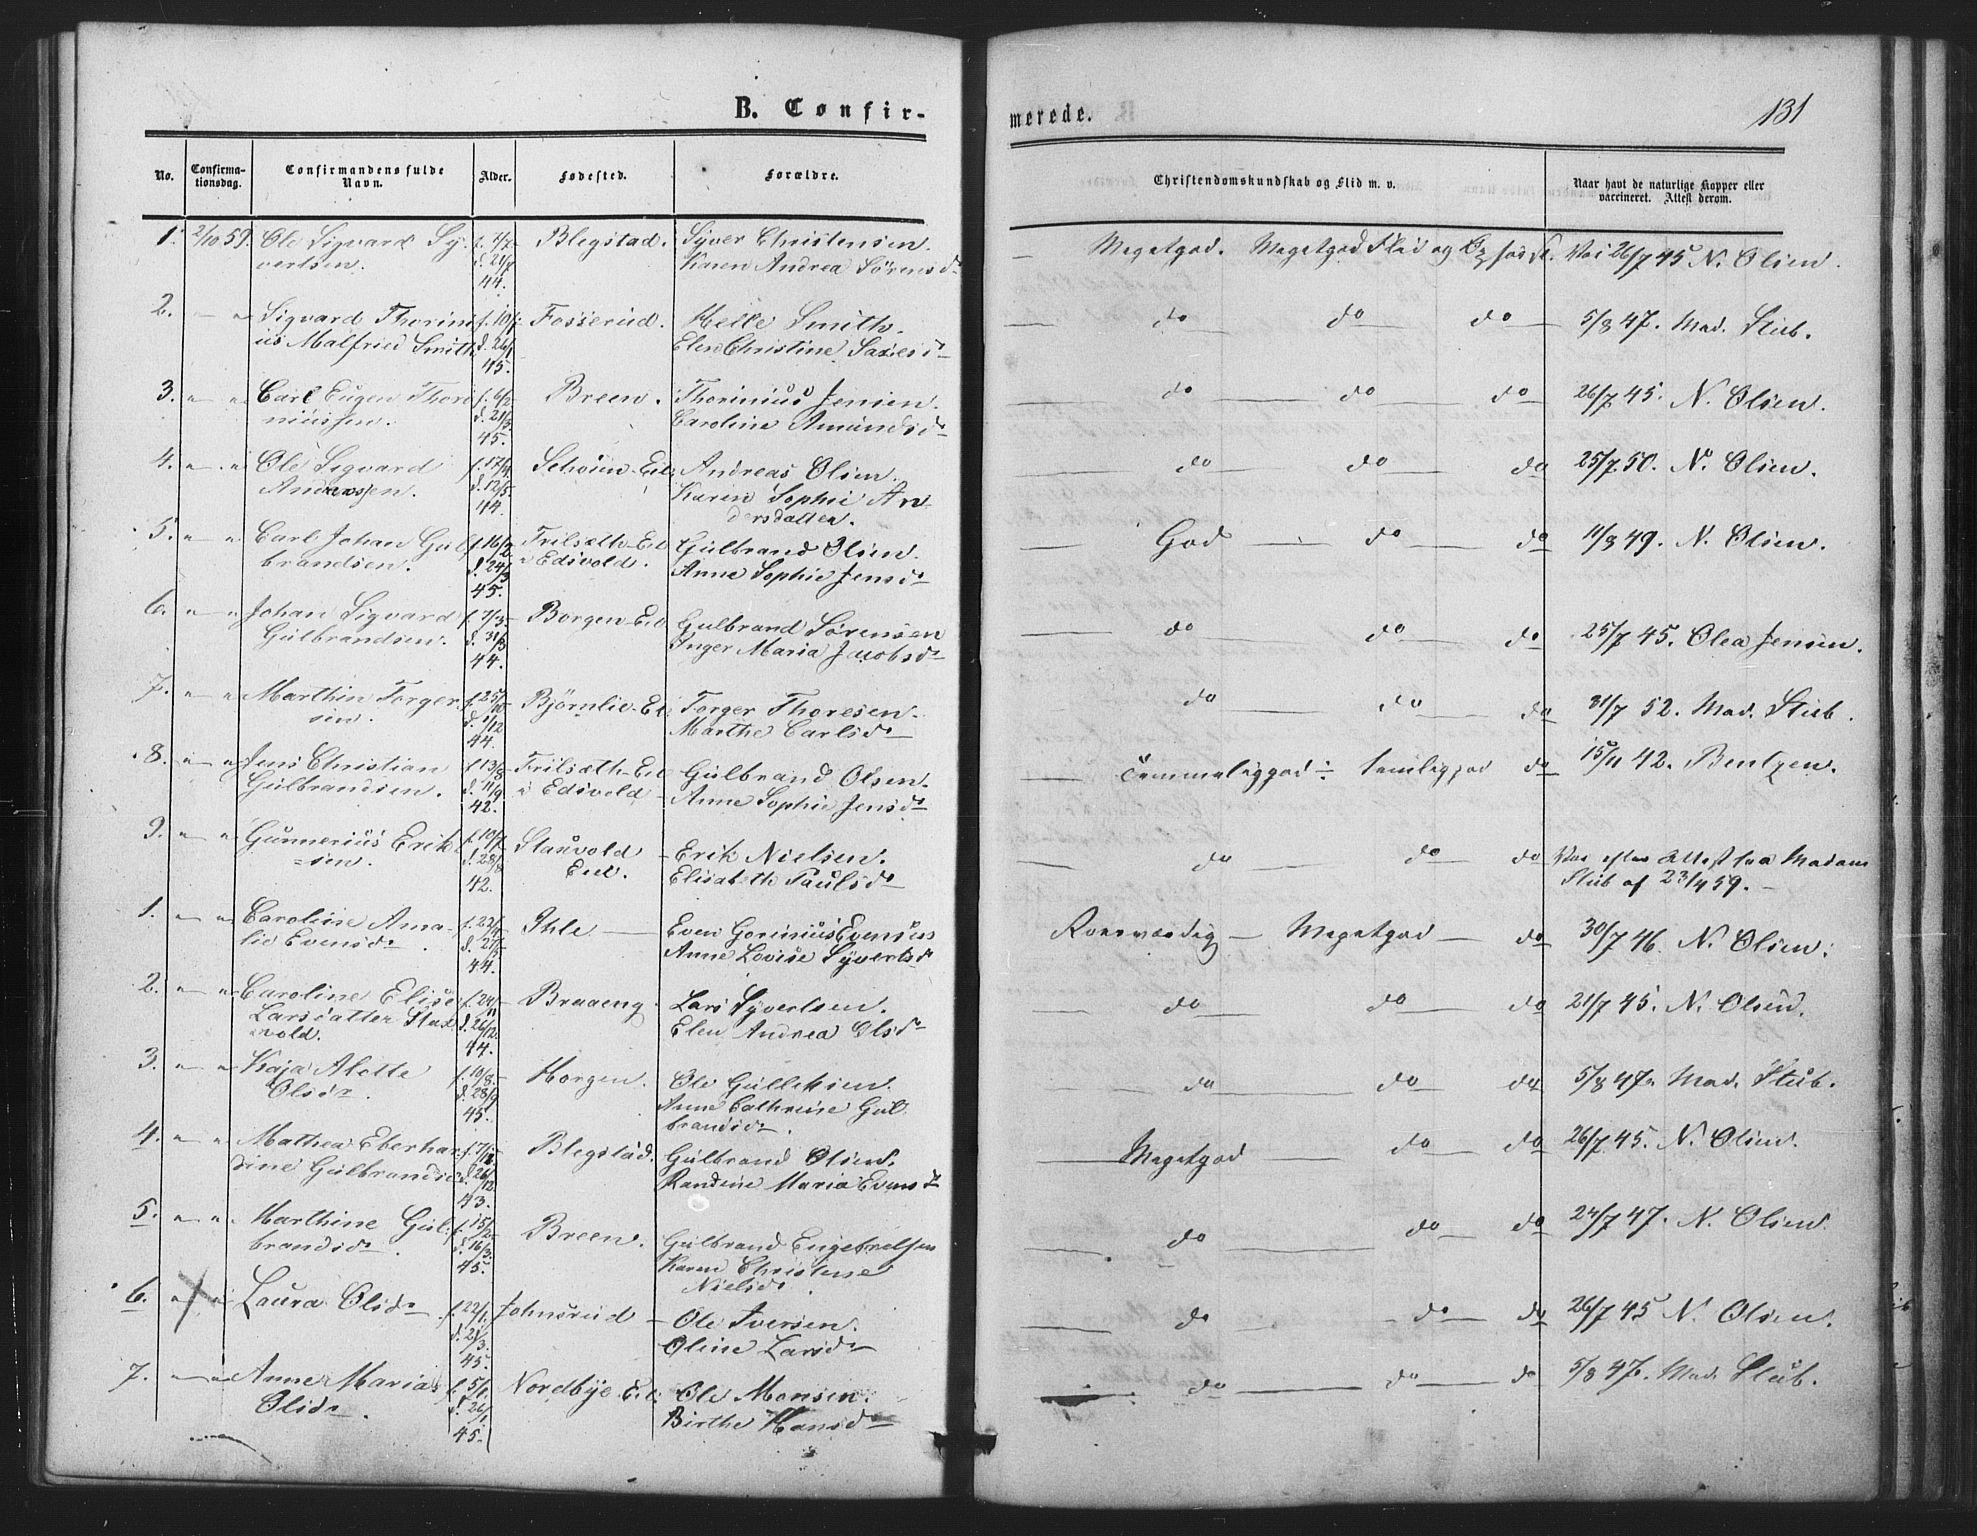 B. Confir-
merede.
131
No.
Confirma-
tionsdag.
Confirmandens fulde
Navn.
Alder.
Fødested.
Forældre.
Christendomskundskab og Flid m. v.
Naar havt de naturlige Kopper eller
vaccineret. Attest derom.
1. 2/10 59. Ole Sigvard Sy- f. 7/7 Blegstad. Syver Christensen. Megetgod. Megetgod Flid og Vac 26/7 45 N. Olsen.
vertsen. d. 21/7 Karen Andrea Sørensd.
44.
2. Sigvard Thorini f. 10/ Fosserud. Helle Smith. do do do 5/8 47. Mad. Stub.
us Malfried Smith d. 26/1 Elen Christine
45.
3. Carl Eugen Thori f. 6/2 Breen. Thorinius Jensen. do do do 26/7 45. N. Olsen.
niussen. d. 21/3 Caroline Amundsd.
45.
4. Ole Sigvard f. 17/4 Andreas Olsen. do do do 25/7 50. N. Olsen.
Anderssen. d. 12/5 Karen Sophie An
44. dersdatter.
5. Carl Johan Gul f. 16/2 Trilsæth-Eie Gulbrand Olsen. God do do 11/8 49. N. Olsen.
brandsen. d. 24/3 i Edsvold. Anne Sophie Jensd.
45.
6. Johan Sigvard f. 7/3 Borgen-Eie Gulbrand Sørensen do do do 25/7 45. Olea Jensen.
Gulbrandsen. d. 31/3 Inger Maria Jacobsd.
44.
7. Marthin Torger f. 25/10 Bjørnlie-Ei. Torger Thoresen. do do do 31/7 52. Mad. Stub.
sen. d. 1/12 Marthe Carlsd.
44.
8. Jens Christian f. 13/8 Trilsæth-Eie Gulbrand Olsen. Temmeliggod temligod do 15/11 42. Bentzen.
Gulbrandsen. d. 11/9 i Edsvold Anne Sophie Jensd.
42.
9. Gunnerius Erik f. 10/7 Stauvold Erik Nielsen. do do do Vac efter Attest fra Madam
sen. d. 28/8 Eie. Elisabeth Paulsd. Stub af 23/4 59.
42.
1. Caroline Ama- Ihle Even Gorinius Evensen Roesværdig Megetgod do 30/7 46. N. Olsen.
lie Evensd. Anne Lovise Syvertsd
44.
2. Caroline Elise f. 24/11 Braaeng Lars Syvertsen. do do do 21/7 45. N. Olsen.
Larsdatter Stau d. 26/12 Elen Andrea Olsd.
vold. 44.
3. Kaja Alette f. 10/8 Horgen. Ole Gulliksen. do do do 5/8 47. Mad. Stub.
Olsd. d. 28/9 Anne Cathrine Gul
45. brandsd.
4. Mathea Eberhar f. 7/12 Blegstad. Gulbrand Olsen. Megetgod do do 26/7 45. N. Olsen.
dine Gulbrandsd. d. 26/12 Randine Maria Evensd
43.
5. Marthine Gul f. 15/2 Breen. Gulbrand Engebretsen do do do 24/7 47. N. Olsen.
brandsd. d. 16/3 Karen Christene
45. Nielsd.
6. Laura Olsd. f. 22/1 Johnsrud Ole Iversen. do do do 26/7 45 N. Olsen.
d. 2/3 Oline Larsd.
45.
7. Anne Maria f. 5/1 Nordbye Ei. Ole Monsen. do do do 5/8 47. Mad. Stub.
Olsd. d. 26/1 Birthe Hansd.
45.